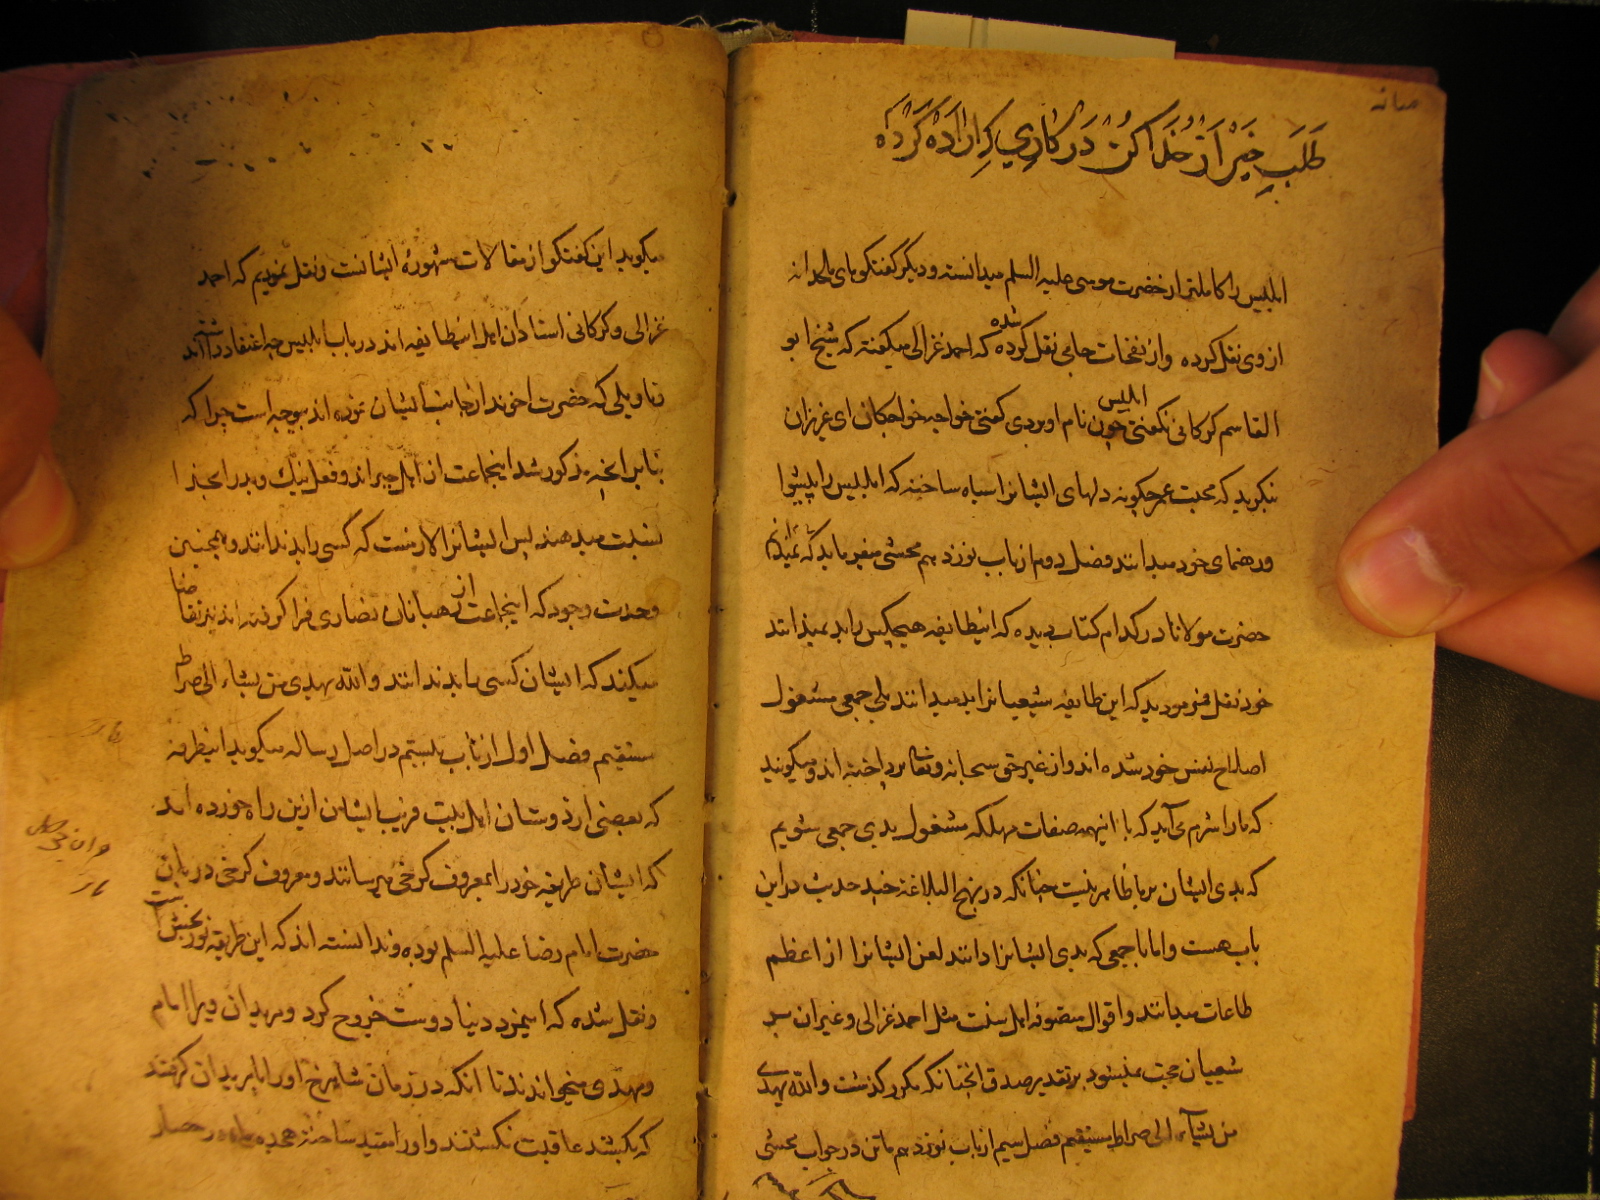 میانه
طَلَبِ خَیْر اَزْ خُدا کُنْ دَرْ کاری کِه اِرادَه کَرْدَه
ابلیس را کاملتر از حضرت موسی علیه السلم میدانسته و دیگر گفتگوهای ملحدانه
از وی نقل کرده و از نفحات جامی نقل کرده شده که احمد غزالی میگفته که شیخ ابو
القاسم کرکانی نگفتی چون نام او بردی ابلیس گفتی خواجه خواجکان ای عزیزان
بنگرید که محبت عمر چگونه دلهای ایشانرا سیاه ساخته که ابلیس را پیشوا
و رهنمای خود میدانند فصل دوم از باب نوزدهم محشی میفرماید که نمیدانم
حضرت مولانا در کدام کتاب دیده که این طایفه هیچکس را بد نمیدانند
خود نقل فرمودید که این طایفه شیعیانرا بد میدانند بلی جمعی مشغول
اصلاح نفس خود شده اند و از غیر حق سبحانه و تعالی پرداخته اند و میگویند
که ما را شرم می آید که با اینهمه صفات مهلکه مشغول بدی جمعی شویم
که بدی ایشان بر ما ظاهر نیست چنانکه در نهج البلاغة چند حدیث در این
باب هست و اما با جمعی که بدی ایشانرا دانند لعن ایشانرا از اعظم
طاعات میدانند و اقوال متصوفه اهل سنت مثل احمد غزالی و غیر آن بر
شیعیان حجت نمیشود بر تقدیر صدق چنانکه مکرر گذشت والله یهدی
من یشاء الی صراط مستقیم فصل سیم از باب نوزدهم ماتن در جواب محشی
میگوید این گفتگو از مقالات مشهوره ایشانست و نقل نمودیم که احمد
غزالی و کرکانی استادان اهل این طایفه اند در باب ابلیس چه اعتقاد داشته اند
تاویلی که حضرت اخوند از جانب ایشان نموده اند بیوجه است چرا که
بنابر آنچه مذکور شد اینجماعت از اهل جبراند و فعل نیک و بد را بخدا
نسبت میدهند پس ایشانرا لازمست که کسی را بد ندانند و همچنین
وحدت وجود که اینجماعت از رهبانان نصاری فرا گرفته اند نیز تقاضا
میکند که ایشان کسی را بد ندانند والله یهدی من یشاء الی صراط
مستقیم فصل اول از باب بیستم در اصل رساله میگوید اینطرفه
که بعضی از دوستان اهل بیت فریب ایشان ازین راه خورده اند
که ایشان طریقه خود را بمعروف کرخی میرسانند و معروف کرخی دربان
حضرت امام رضا علیه السلم بوده و ندانسته اند که این طریقه نوربخش است
و نقل شده که اینمرد دنیا دوست خروج کرد و مریدان ویرا امام
و مهدی میخواندند تا آنکه در زمان شاهرخ او را با مریدان گرفتند
که بکشند عاقبت نکشتند و او را مقید ساخته